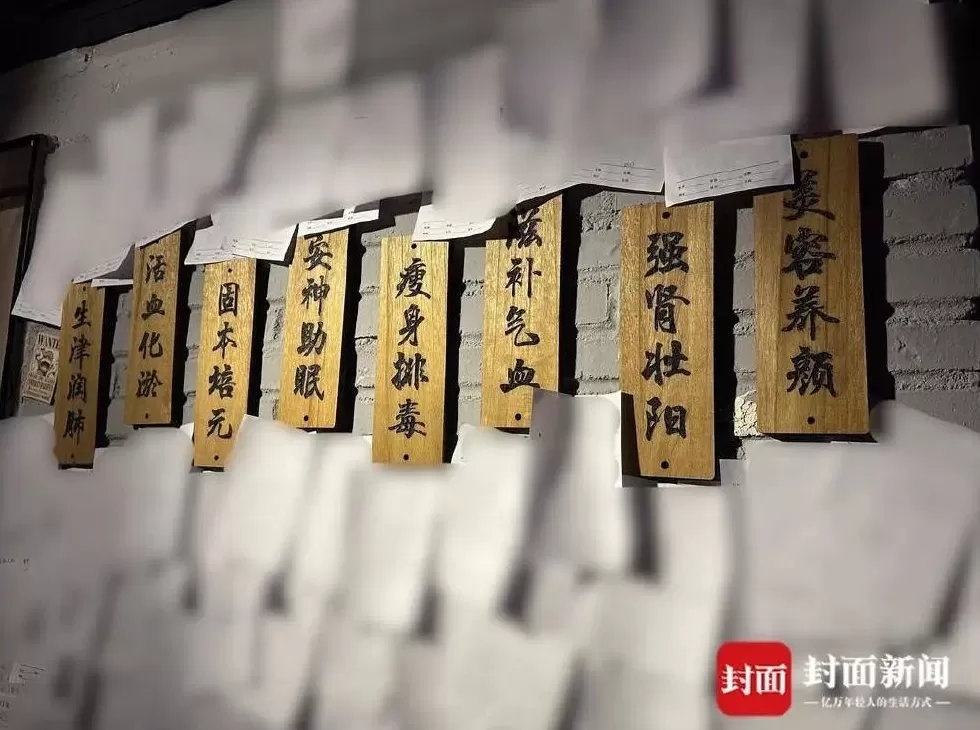 生津润肺
活血化淤
固本培元
安神助眠
瘦身排毒
滋补气血
强肾壮阳
美容养颜
封面
封面新闻
亿万年轻人的生活方式